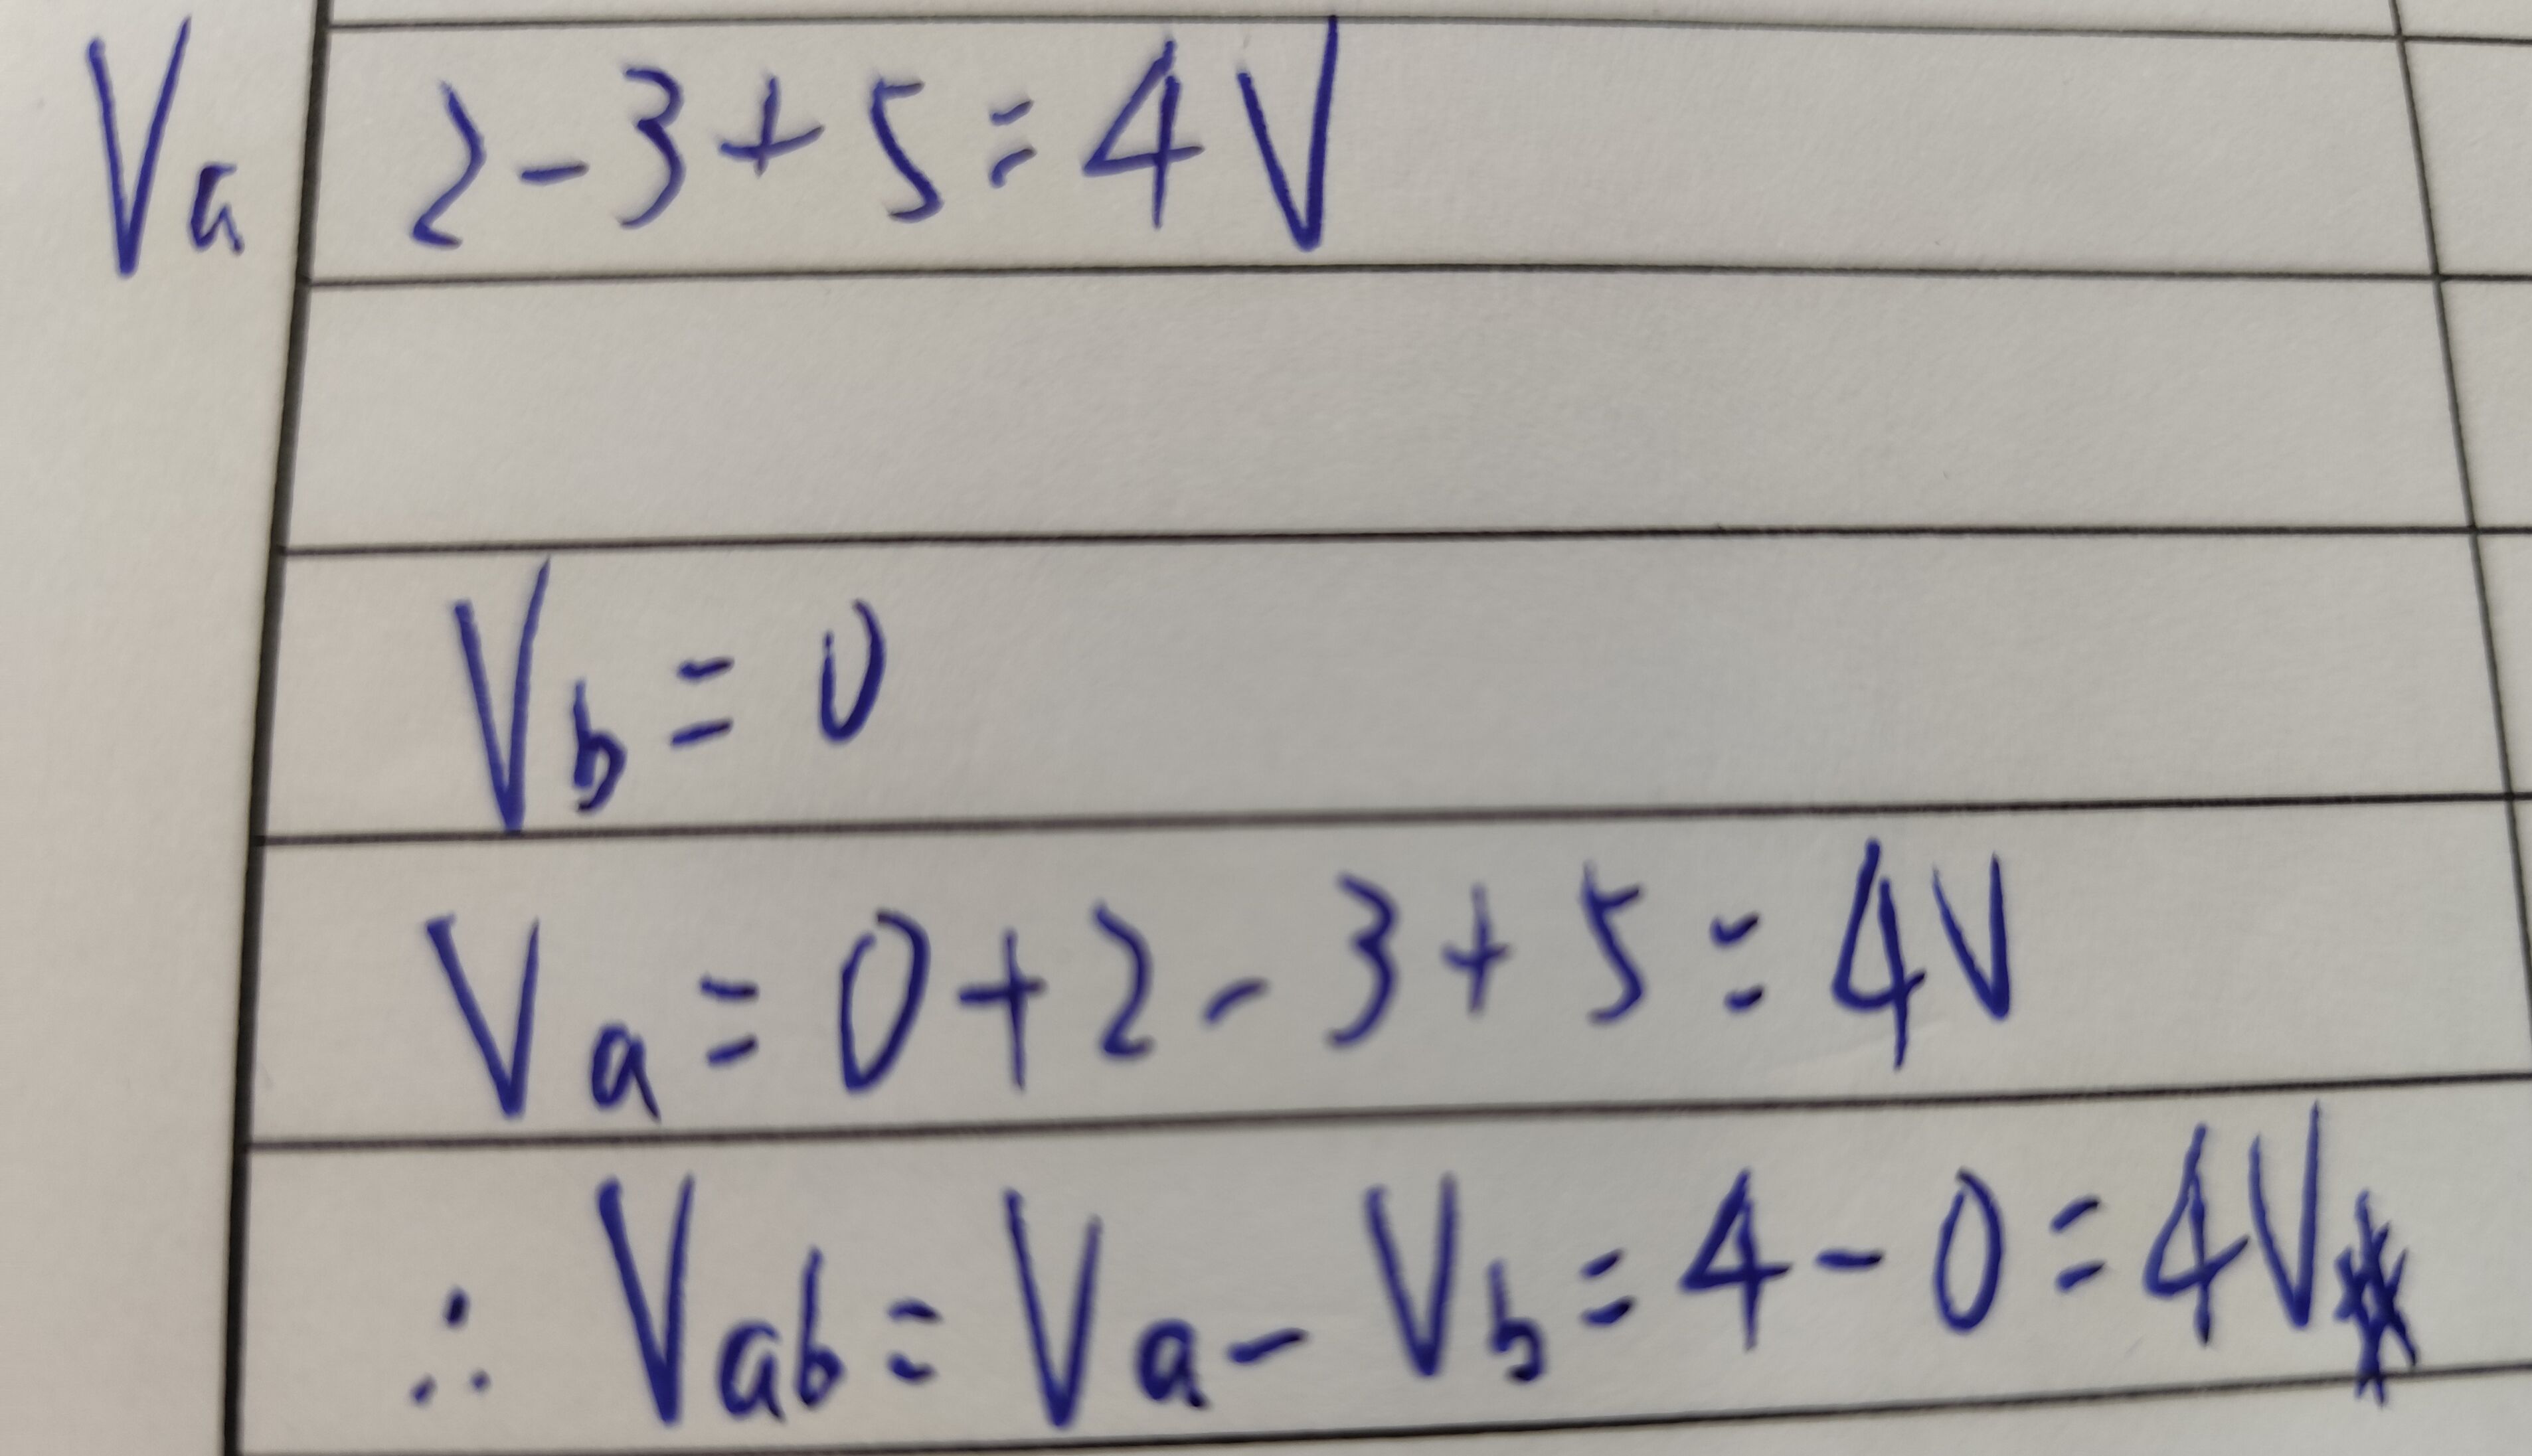 Va 2-3+5=4V
Vb=0
Va=0+2-3+5=4V
∴ Vab=Va-Vb=4-0=4V